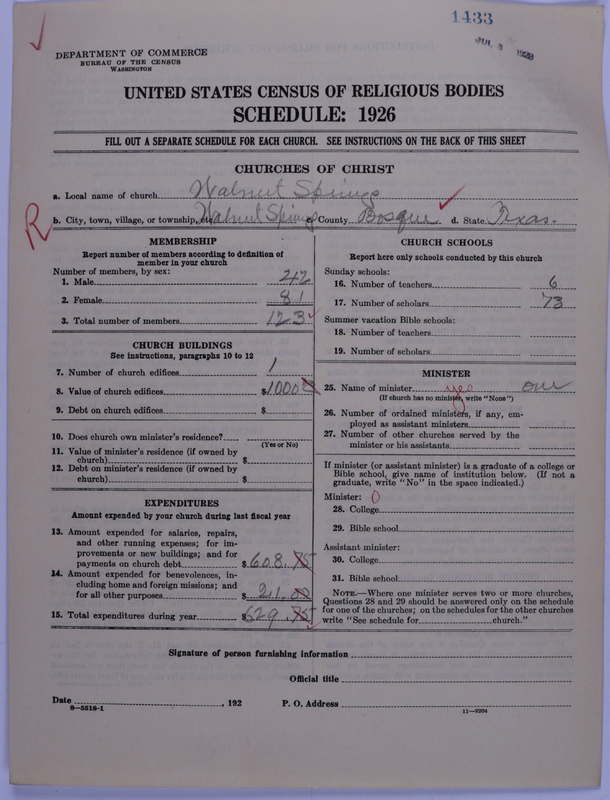 1433
JUL 3 1928
DEPARTMENT OF COMMERCE
BUREAU OF THE CENSUS
WASHINGTON
UNITED STATES CENSUS OF RELIGIOUS BODIES
SCHEDULE: 1926
FILL OUT A SEPARATE SCHEDULE FOR EACH CHURCH. SEE INSTRUCTIONS ON THE BACK OF THIS SHEET
CHURCHES OF CHRIST
a. Local name of church Walnut Springs
R
b. City, town, village, or township, etc. Walnut Springs c. County Bosque d. State Texas.
MEMBERSHIP
Report number of members according to definition of
member in your church
Number of members, by sex:
1. Male 42
2. Female 81
3. Total number of members 123
CHURCH BUILDINGS
See instructions, paragraphs 10 to 12
7. Number of church edifices 1
8. Value of church edifices $1000
9. Debt on church edifices $
10. Does church own minister's residence?
(Yes or No)
11. Value of minister's residence (if owned by
church) $
12. Debt on minister's residence (if owned by
church) $
EXPENDITURES
Amount expended by your church during last fiscal year
13. Amount expended for salaries, repairs,
and other running expenses; for im-
provements or new buildings; and for
payments on church debt $608.75
14. Amount expended for benevolences, in-
cluding home and foreign missions; and
for all other purposes $21.00
15. Total expenditures during year $629.75
CHURCH SCHOOLS
Report here only schools conducted by this church
Sunday schools:
16. Number of teachers 6
17. Number of scholars 73
Summer vacation Bible schools:
18. Number of teachers
19. Number of scholars
MINISTER
25. Name of minister yes one
(If church has no minister, write "None")
26. Number of ordained ministers, if any, em-
ployed as assistant ministers
27. Number of other churches served by the
minister or his assistants
If minister (or assistant minister) is a graduate of a college or
Bible school, give name of institution below. (If not a
graduate, write "No" in the space indicated.)
Minister: 0
28. College
29. Bible school
Assistant minister:
30. College
31. Bible school
NOTE.—Where one minister serves two or more churches,
Questions 28 and 29 should be answered only on the schedule
for one of the churches; on the schedules for the other churches
write "See schedule for church."
Signature of person furnishing information
Official title
Date , 192 P. O. Address
8—5518-1 11—9204